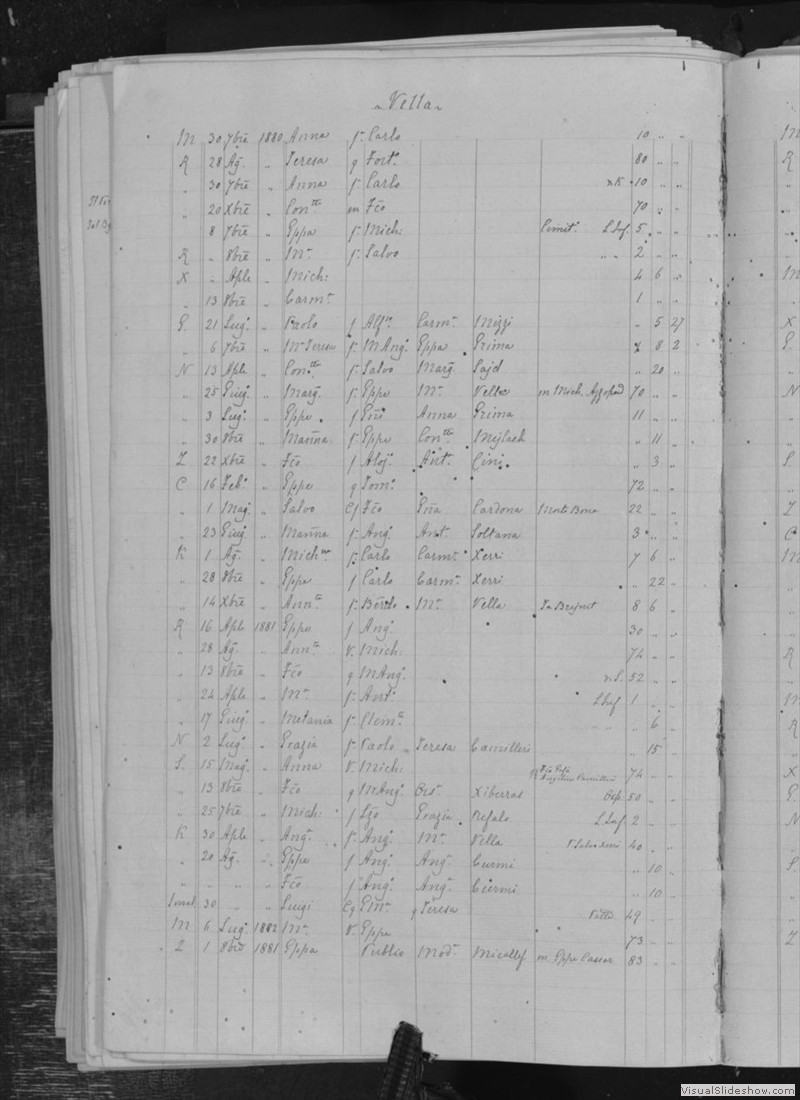 „Vella„
M 30 7bre 1880 Anna f. Carlo 10 „ „
R 28 Ag. „ Teresa q Fort. 80 „ „
„ 30 7bre „ Anna f. Carlo n.K. 10 „ „
„ 20 Xbre „ Con.tta m Fco 70 „ „
8 7bre „ Eppa f. Mich. Cimit. L.Inf. 5 „ „
R „ 8bre „ M.a f. Salvo „ „ 2 „ „
X „ Aple „ Mich. 4 6 „
„ 13 8bre „ Carm.a 1 „ „
G. 21 Lug. „ Paolo f Alf.so Carm.a Mizzi „ 5 27
„ 6 7bre „ M.a Teresa f. M.Ang. Eppa Grima 8 2
N 13 Aple „ Con.tta f. Salvo Marg. Sajd „ 20 „
„ 25 Giug. „ Marg. f. Eppe M.a Vella m Mich. Azzopard 70 „ „
„ 3 Lug. „ Eppe f Gni Anna Grima 11 „ „
„ 30 8bre „ Marina f. Eppe Con.tta Mejlach „ 11 „
Z 22 Xbre „ Fco f Aloj. Ant. Cini „ 3 „
C 16 Feb. „ Eppe q Tom. 72 „ „
„ 1 Mag. „ Salvo Cf Fco Gna Cardona Morte Bona 22 „ „
„ 23 Giug. „ Marina f. Ang. Ant. Soltana 3 „ „
K 1 Ag. „ Mich.le f. Carlo Carm.a Xerri 7 6 „
„ 28 8bre „ Eppa f Carlo Carm.a Xerri „ 22 „
„ 14 Xbre „ Ann.tta f. Berdo M.a Vella 8 6 „
R 16 Aple 1881 Eppe f Ang. 30 „ „
„ 28 Ag. „ Ann.tta V. Mich. 74 „ „
„ 13 8bre „ Fco q M.Ang. n.S. 52 „ „
„ 24 Aple „ M.a f. Ant. L.Inf. 1 „ „
„ 17 Giug. „ Melania f. Clem.te „ 6 „
N 2 Lug. „ Grazia f. Paolo Teresa Camilleri „ 15 „
S. 15 Mag. „ Anna V. Mich. 74 „ „
„ 13 8bre „ Fco q M.Ang. Xiberras Osp. 50 „ „
„ 25 7bre „ Mich. f Lzo Grazia Refalo L.Inf. 2 „ „
K 30 Aple „ Ang. f. Ang. M.a Vella V. Salvo Xerri 40 „ „
„ 20 Ag. „ Eppe f Ang. Ang. Curmi „ 10 „
„ „ „ „ Fco f Ang. Ang. Curmi „ 10 „
30 „ „ Luigi Cq Em. q Teresa 49 „ „
M 6 Lug. 1882 M.a V. Eppe 73 „ „
Z 1 8bre 1881 Eppa Publio Mod.a Micallef m Eppe Cassar 83 „ „
VisualSlideshow.com